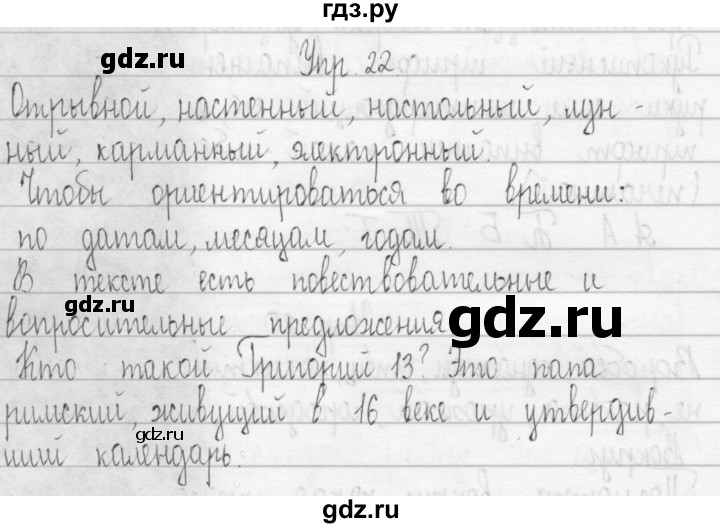 гдз.ру
gdz.ru
Упр. 22.
Отрывной, настенный, настольный, лун-
ный, карманный, электронный.
gdz.ru
Чтобы ориентироваться во времени:
по датам, месяцам, годам.
В тексте есть повествовательные и
gdz.ru
вопросительные предложения
gdz.ru
Кто такой Григорий 13? Это папа
римский, живущий в 16 веке и утвердив-
gdz.ru
ший календарь.
gdz.ru